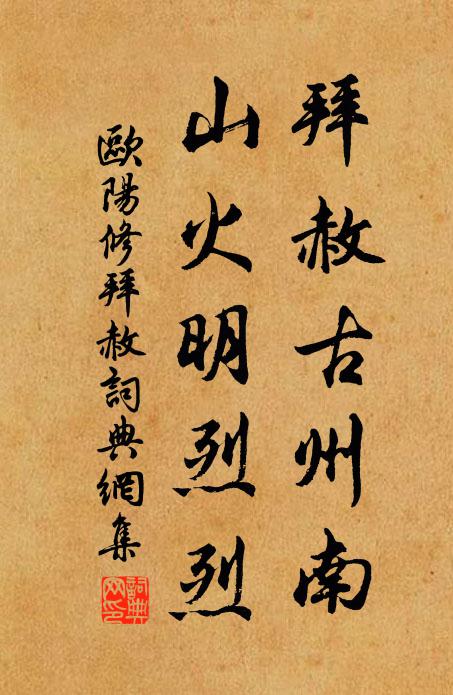 拜赦古州南
山火明烈烈
歐陽修拜赦詞典網集
詞典网印